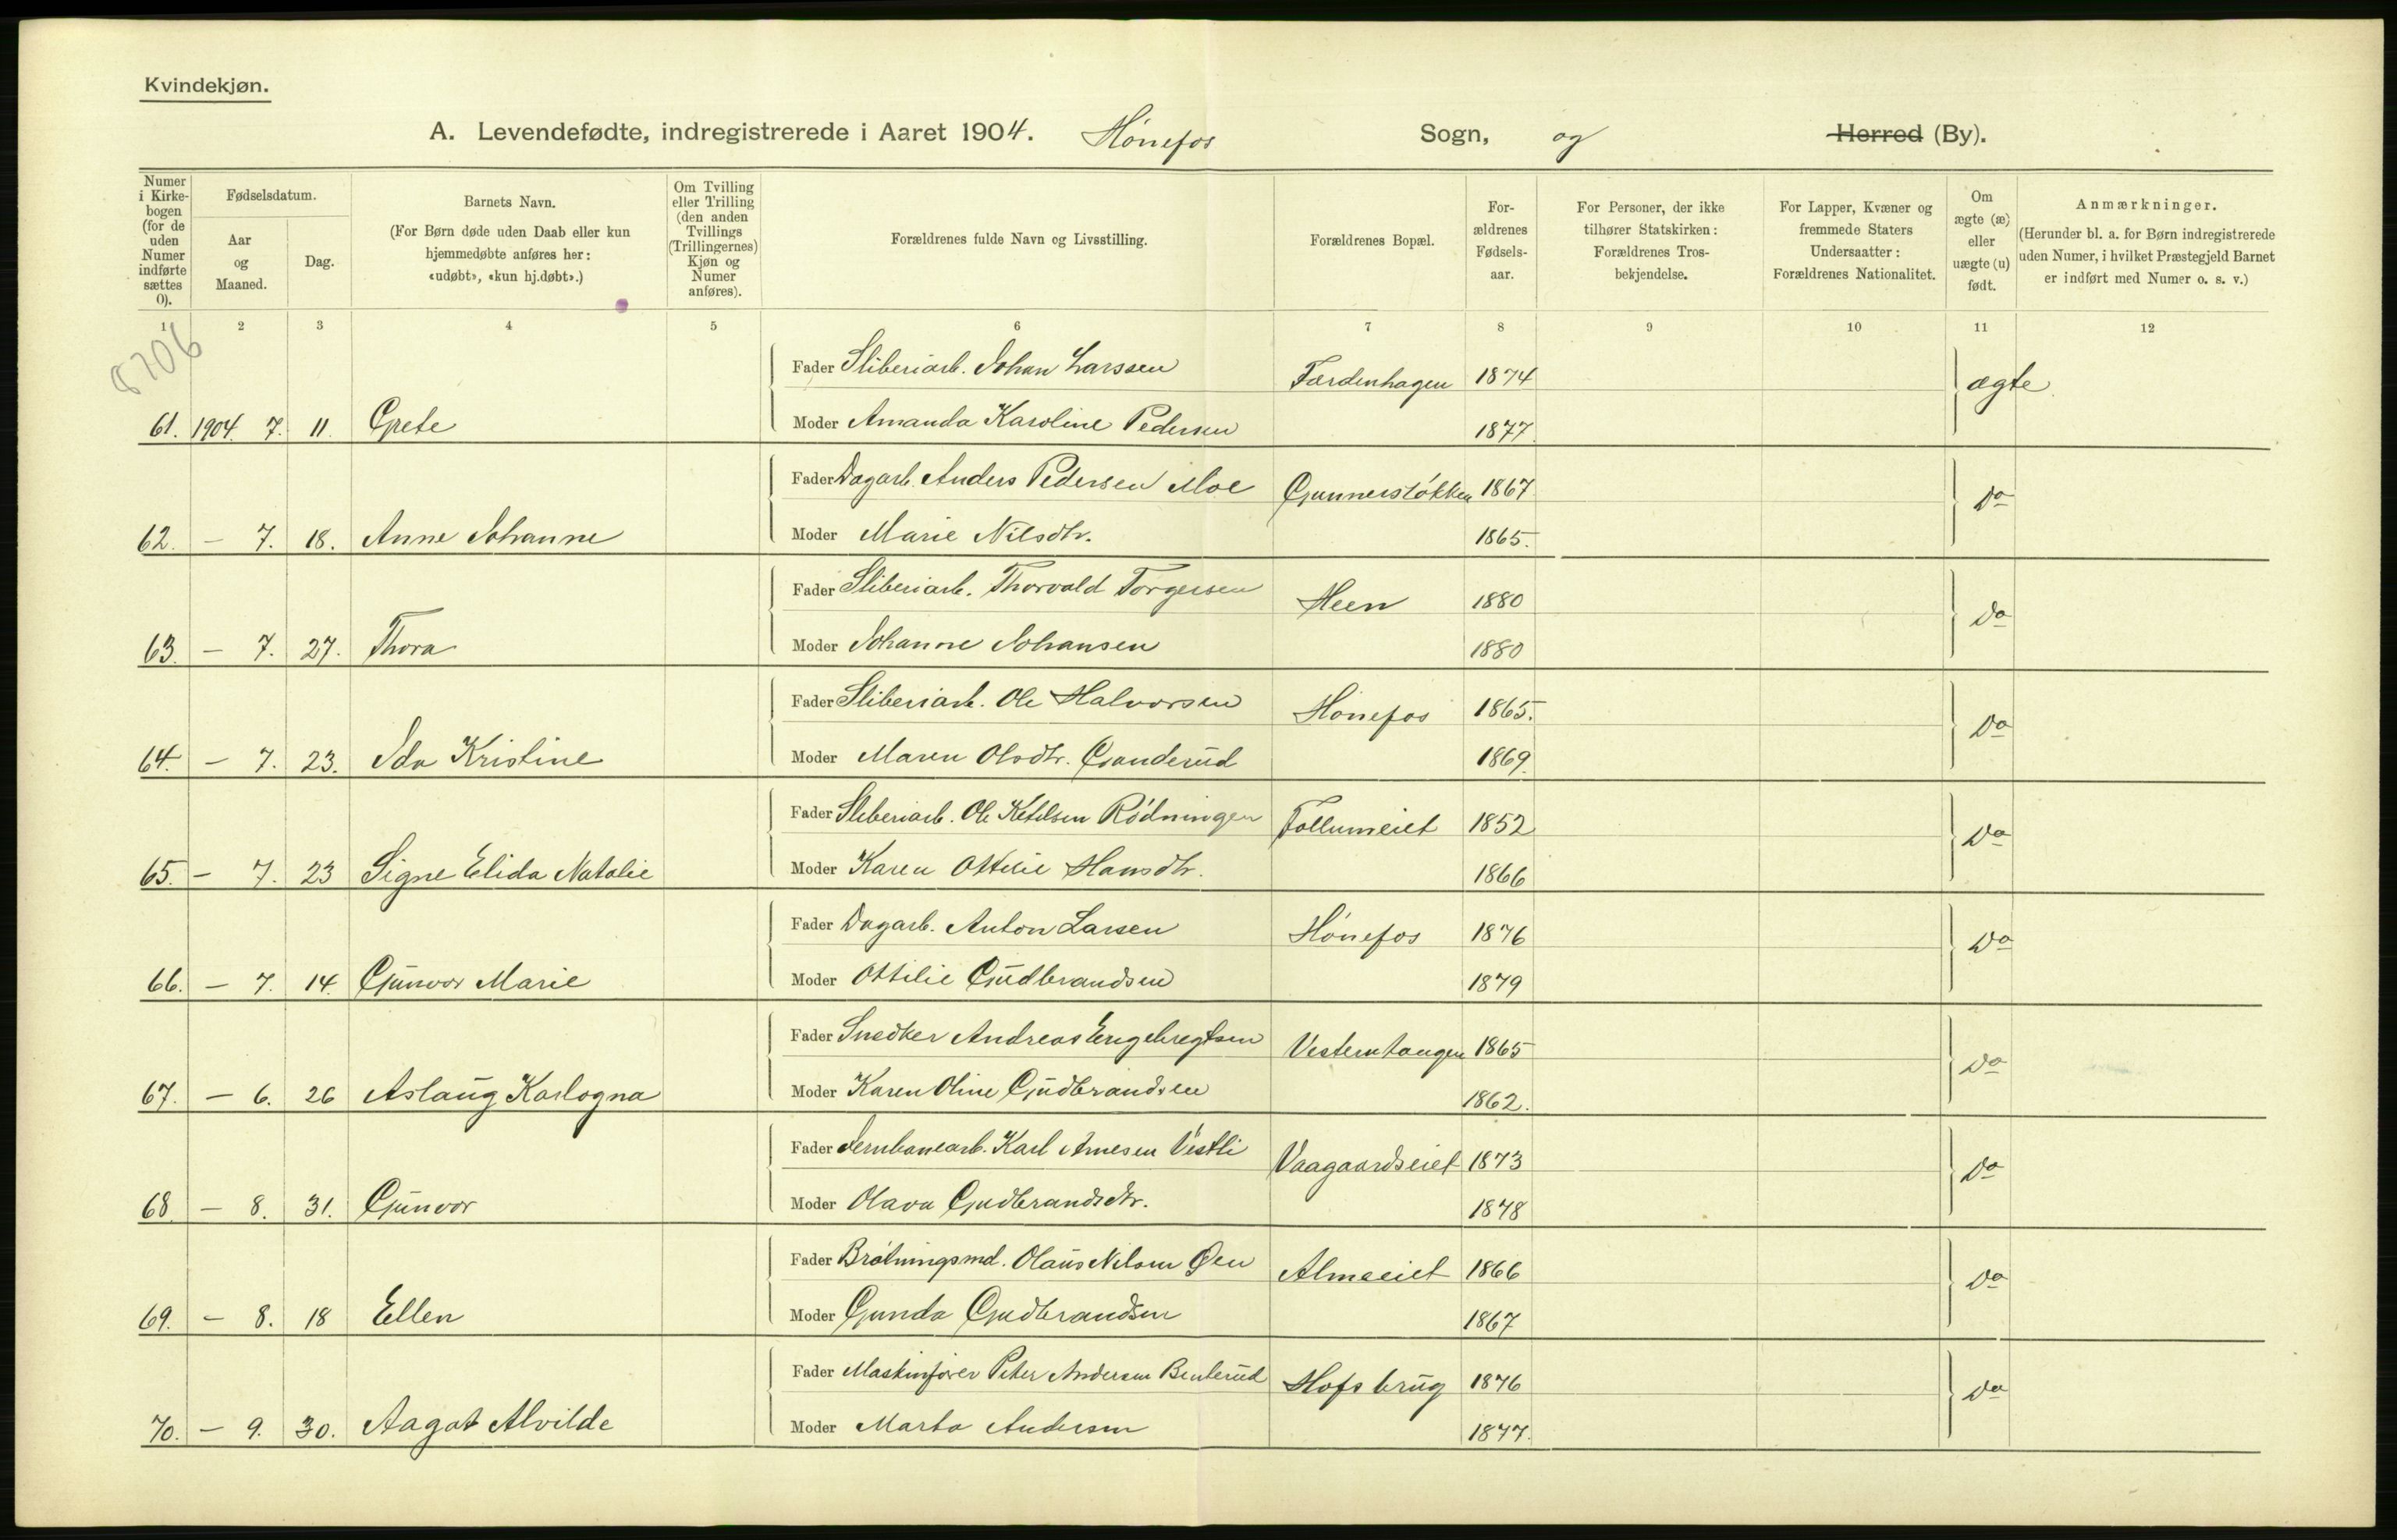 Kvindekjøn.
A. Levendefødte, indregistrerede i Aaret 1904. Hønefos Sogn, og Herred (By).
Numer i Kirkebogen (for de uden Numer indførte sættes 0).
Fødselsdatum.
Aar og Maaned.
Dag.
Barnets Navn.
(For Børn døde uden Daab eller kun hjemmedøbte anføres her: «udøbt», «kun hj.døbt».)
Om Tvilling eller Trilling (den anden Tvillings (Trillingernes) Kjøn og Numer anføres).
Forældrenes fulde Navn og Livsstilling.
Forældrenes Bopæl.
Forældrenes Fødselsaar.
For Personer, der ikke tilhører Statskirken: Forældrenes Trosbekjendelse.
For Lapper, Kvæner og fremmede Staters Undersaatter: Forældrenes Nationalitet.
Om ægte (æ) eller uægte (u) født.
Anmærkninger.
(Herunder bl. a. for Børn indregistrerede uden Numer, i hvilket Præstegjeld Barnet er indført med Numer o. s. v.)
1 2 3 4 5 6 7 8 9 10 11 12
8706
Fader Sliberiarb. Johan Larssen Færdenhagen 1874 ægte
61. 1904. 7. 11. Grete Moder Amanda Karoline Pedersen 1877.
Fader Dagarb. Anders Pedersen Moe Gunnersløkken 1867 do
62. – 7. 18. Anne Johanne Moder Marie Nilsdtr. 1865.
Fader Sliberiarb. Thorvald Torgersen Heen 1880 do
63. – 7. 27. Thora Moder Johanne Johansen 1880
Fader Sliberiarb. Ole Halvorsen Hønefos 1865. do
64. – 7. 23. Ida Kristine Moder Maren Olsdtr. Granderud 1869.
Fader Sliberiarb. Ole Ketilsen Rødningen Follumeiet 1852 do
65. – 7. 23 Signe Elida Natalie Moder Karen Ottilie Hansdtr. 1866
Fader Dagarb. Anton Larsen Hønefos 1876 do
66. – 7. 14. Gunvor Marie Moder Ottilie Gudbrandsen 1879
Fader Snedker Andreas Engebregtsen Vesterntangen 1865 do
67. – 6. 26 Aslaug Karlogna Moder Karen Oline Gudbrandsen 1862.
Fader Jernbanearb. Karl Arnesen Vestli Vaagaardseiet 1873 do
68. – 8. 31. Gunvor Moder Olava Gudbrandsdtr. 1878
Fader Brøtningsmd. Olaus Nilsen Øen Almeeiet 1866 do
69. – 8. 18 Ellen Moder Gunda Gudbrandsen 1867
Fader Maskinfører Peter Andersen Benterud Hofsbrug 1876 do
70. – 9. 30. Aagot Alvilde Moder Marta Andersen 1877.